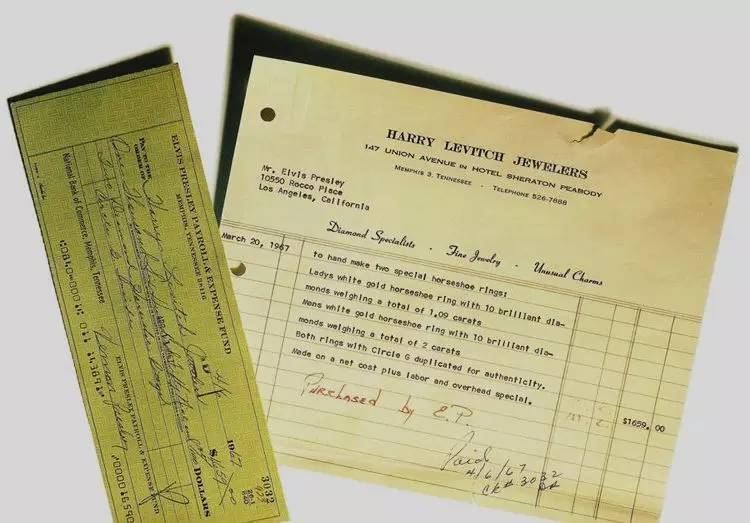 HARRY LEVITCH JEWELERS
147 UNION AVENUE IN HOTEL SHERATON PEABODY
MEMPHIS 3, TENNESSEE · TELEPHONE 526-7888
Mr. Elvis Presley
10550 Rocco Place
Los Angeles, California
Diamond Specialists · Fine Jewelry · Unusual Charms
March 20, 1967
to hand make two special horseshoe rings:
Ladys white gold horseshoe ring with 10 brilliant dia-
monds weighing a total of 1.09 carats
Mens white gold horseshoe ring with 10 brilliant dia-
monds weighing a total of 2 carats
Both rings with Circle G duplicated for authenticity.
Made on a net cost plus labor and overhead special.
$1659.00
PURCHASED by E.P.
Paid
4/6/67
CK# 3032
ELVIS PRESLEY PAYROLL & EXPENSE FUND
MEMPHIS, TENNESSEE 38116
3032
4/6 1967
PAY TO THE
ORDER OF Harry Levitch Jewelers
DOLLARS
National Bank of Commerce, Memphis, Tennessee
ELVIS PRESLEY PAYROLL & EXPENSE FUND